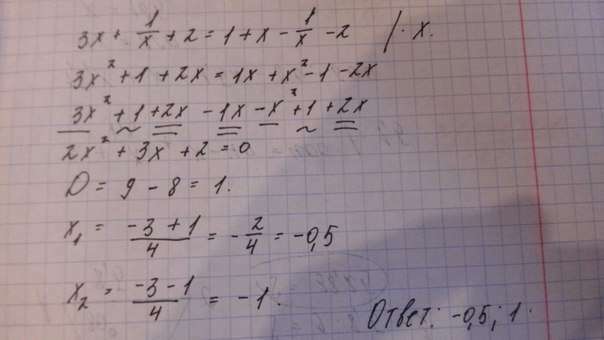 3x + 1/x + 2 = 1 + x - 1/x - 2 / · x.
3x² + 1 + 2x = 1x + x² - 1 - 2x
3x² + 1 + 2x - 1x - x² + 1 + 2x
2x² + 3x + 2 = 0
D = 9 - 8 = 1.
x₁ = (-3 + 1)/4 = -2/4 = -0,5
x₂ = (-3 - 1)/4 = -1.
Ответ: -0,5; 1.